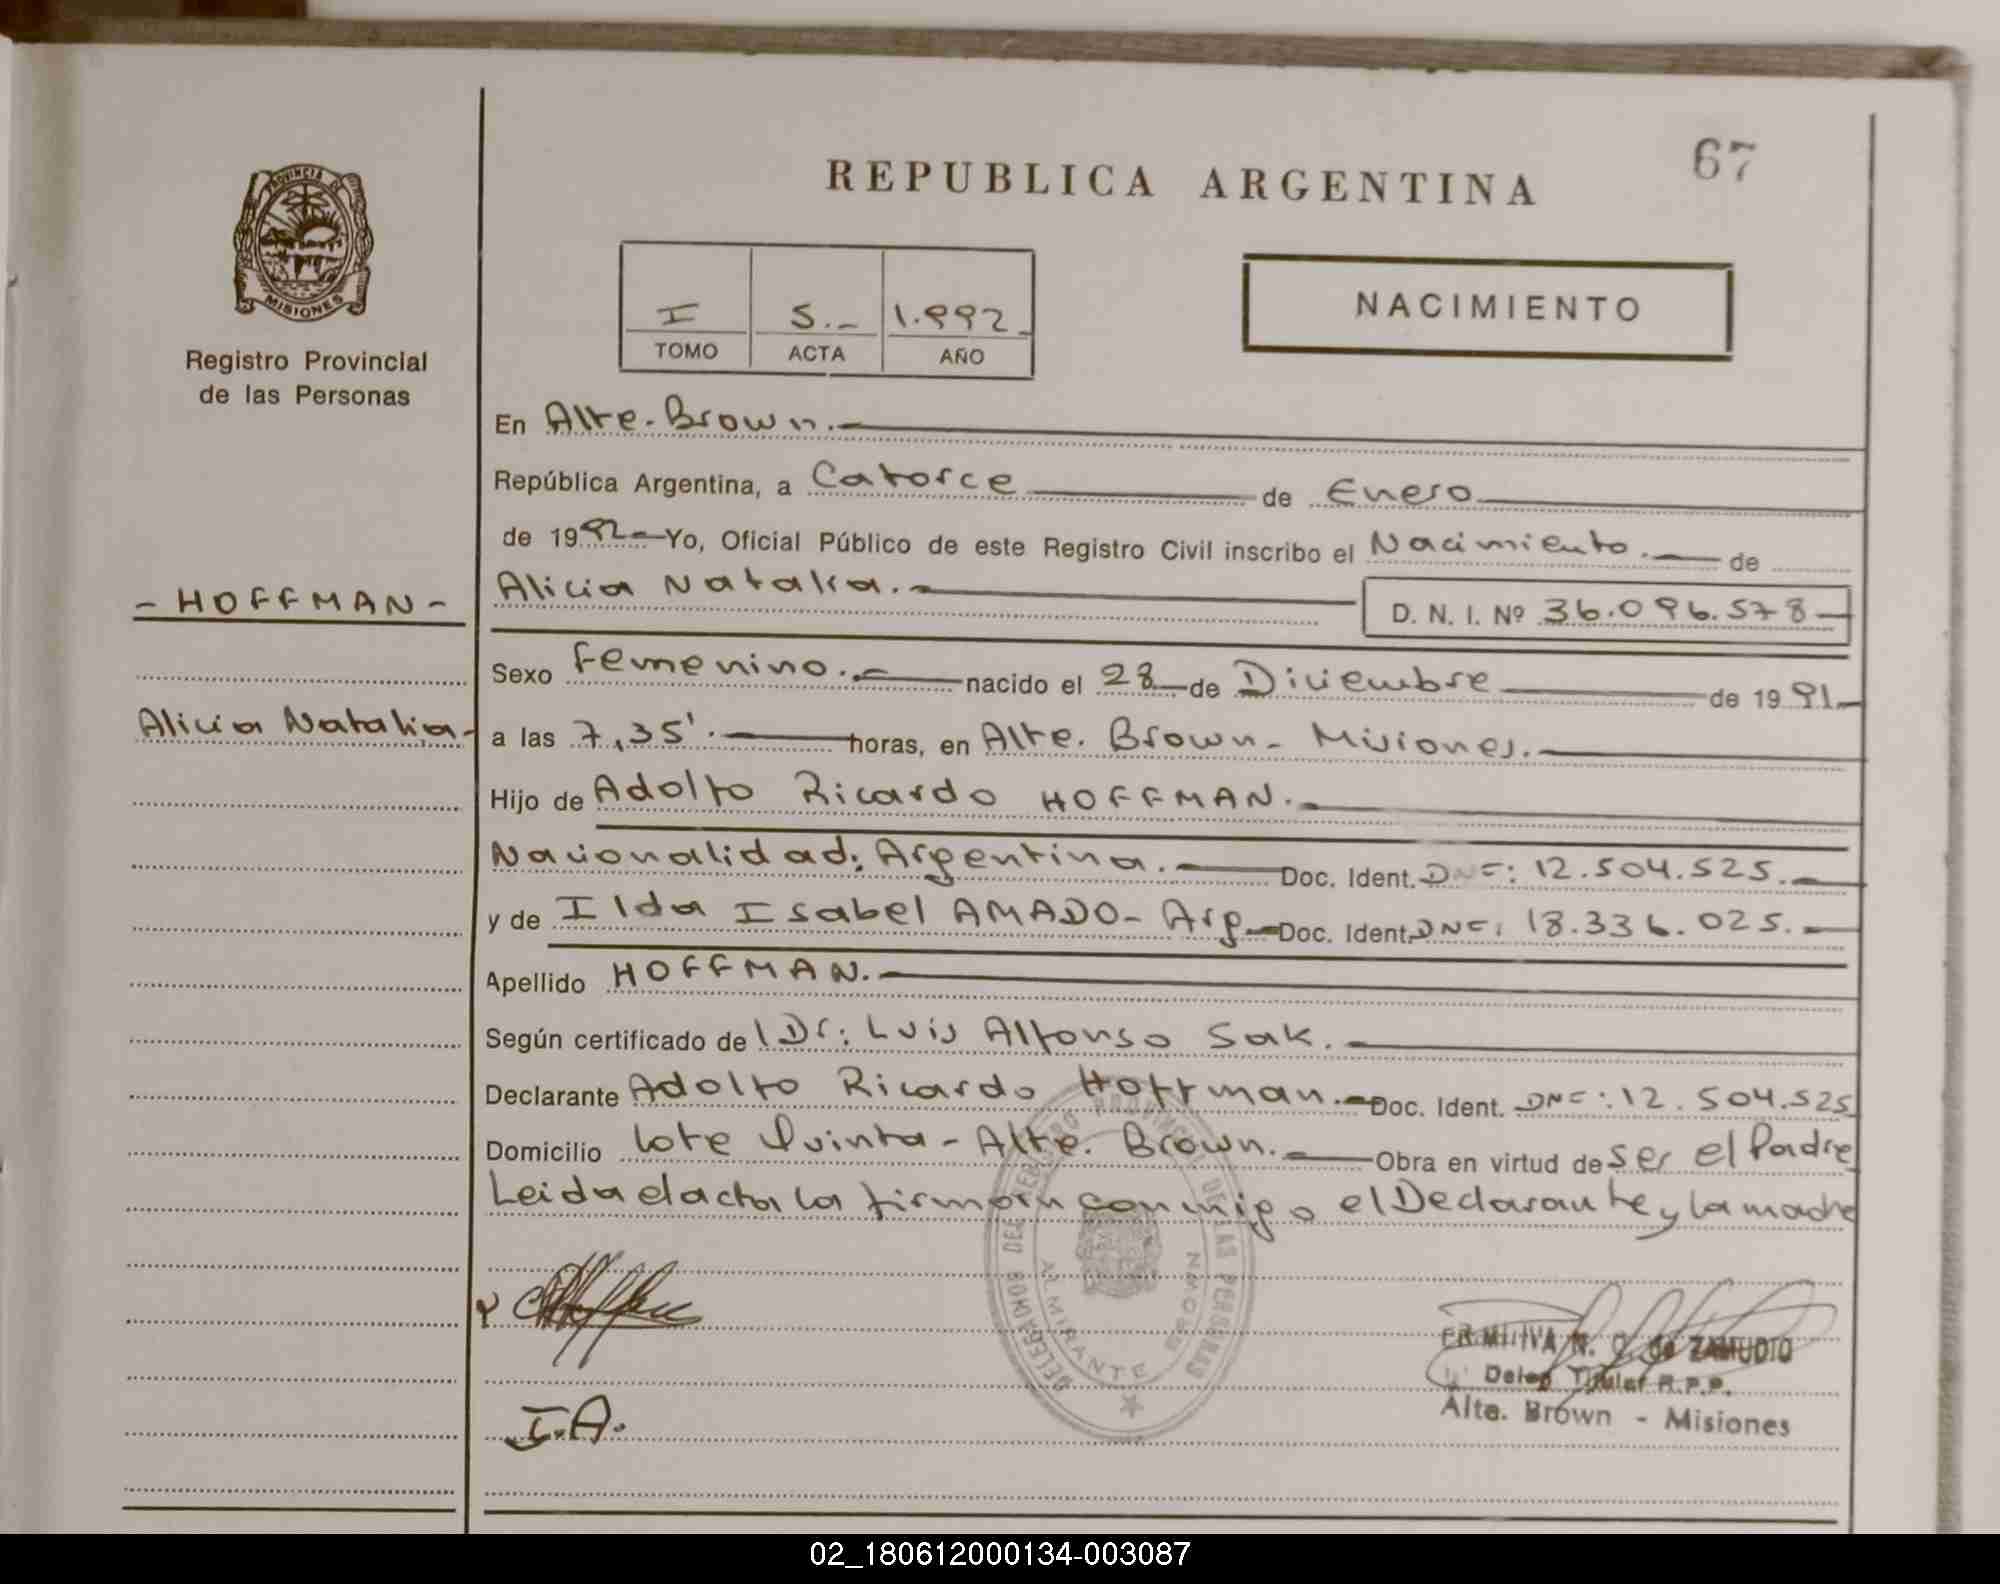 67
REPUBLICA ARGENTINA
PROVINCIA DE
MISIONES
Registro Provincial
de las Personas
I 5.- 1.992
TOMO ACTA AÑO
NACIMIENTO
En Alte. Brown.-
República Argentina, a Catorce de Enero
de 1992- Yo, Oficial Público de este Registro Civil inscribo el Nacimiento.- de
- HOFFMAN -
Alicia Natalia.- D. N. I. Nº 36.096.578-
Sexo femenino.- nacido el 28 de Diciembre de 1991.-
Alicia Natalia-
a las 7,35'.- horas, en Alte. Brown - Misiones.-
Hijo de Adolfo Ricardo HOFFMAN.-
Nacionalidad: Argentina.- Doc. Ident. DNI: 12.504.525.-
y de Ilda Isabel AMADO - Arg.- Doc. Ident. DNI: 18.336.025.-
Apellido HOFFMAN.-
Según certificado de l Dr: Luis Alfonso Sak.-
Declarante Adolfo Ricardo Hoffman.- Doc. Ident. DNI: 12.504.525
Domicilio lote Quinta - Alte. Brown.- Obra en virtud de ser el Padre
Leida el acta la firman conmigo el Declarante y la madre
DELEGACION DEL REGISTRO PROVINCIAL DE LAS PERSONAS
ALMIRANTE BROWN
I.A.
PRIMITIVA N. C. de ZAMUDIO
Deleg. Titular R.P.P.
Alte. Brown - Misiones
02_180612000134-003087